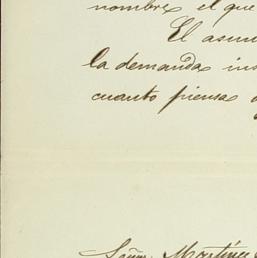 nombre el que
El asun
la demanda ins
cuanto piensa
Señor Martínez